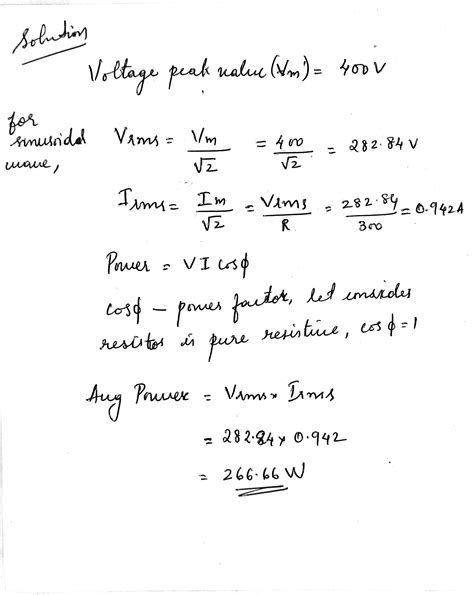 Solution
Voltage peak value (Vm) = 400V
for sinusoidal wave,
Vrms = Vm/√2 = 400/√2 = 282.84 V
Irms = Im/√2 = Vrms/R = 282.84/300 = 0.942A
Power = VI cosϕ
cosϕ – power factor, let consider
resistor is pure resistive, cosϕ = 1
Avg Power = Vrms × Irms
= 282.84 × 0.942
= 266.66 W